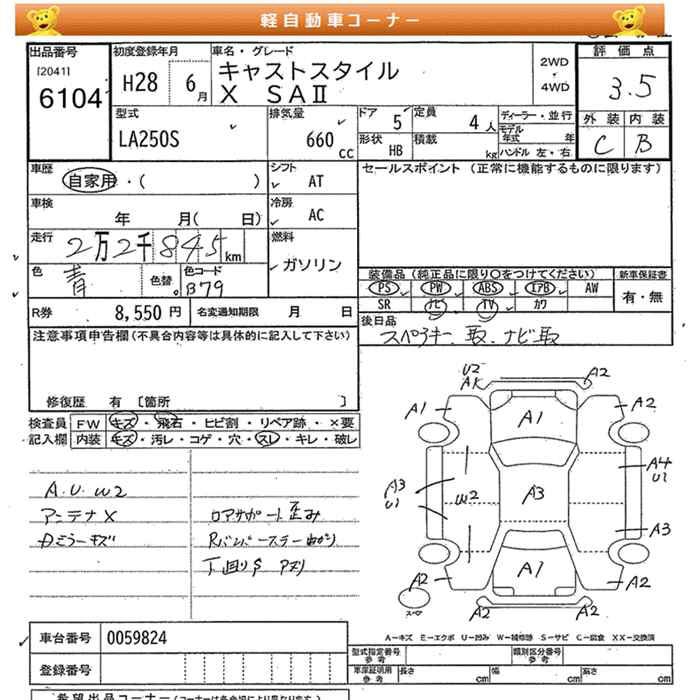 軽自動車コーナー
出品番号 初度登録年月 車名・グレード 評価点
[2041]
6104 H28 6月 キャストスタイル
X SAⅡ
2WD
4WD
3.5
外装 内装
C B
型式 排気量 ドア 定員 ディーラー・並行
LA250S 660cc 5 4人 モデル年式 年
形状 積載
HB kg ハンドル 左・右
車歴 シフト セールスポイント (正常に機能するものに限ります)
自家用・( ) AT
車検 冷房
年 月( 日) AC
走行 燃料
2万2千845km ガソリン
色 色替 色コード 装備品(純正品に限り○をつけてください) 新車保証書
青 B79 PS PW ABS エアB AW 有・無
SR ナビ TV カワ
R券 8,550円 名変通知期限 月 日 後日品
スペアキー、取、ナビ取
注意事項申告欄(不具合内容等は具体的に記入して下さい)
修復歴 有 [箇所 ]
検査員 FW キズ・飛石・ヒビ割・リペア跡・×要
記入欄 内装 キズ・汚レ・コゲ・穴・スレ・キレ・破レ
A.U.W2
アンテナX ロアサポート歪み
Dミラーキズ
下回りS アリ
U2 A1 A2
A1 A1 A2
A3 U1 W2 A3 A4 U1
A3
A2 A1 A2
スペア A2 A2
A-キズ E-エクボ U-凹み W-補修跡 S-サビ C-腐食 XX-交換済
車台番号 0059824 型式指定番号 参考 類別区分番号 参考
登録番号 車庫証明用 参考 長さ cm 幅 cm 高さ cm
希望出品コーナー